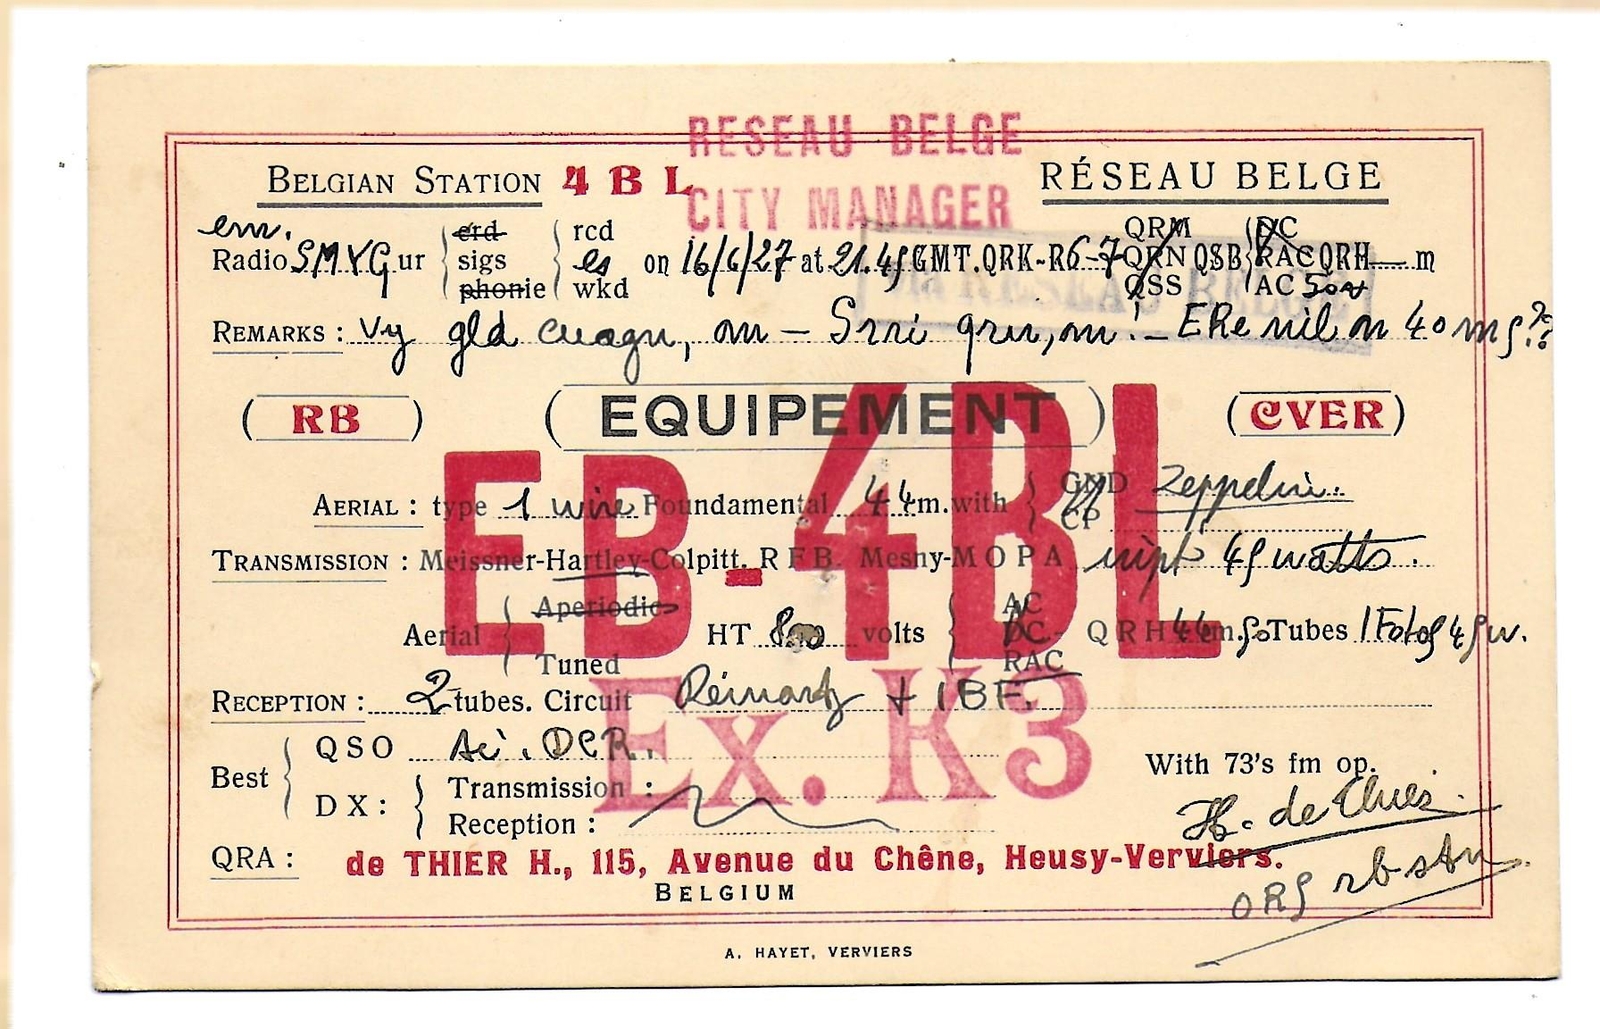 RESEAU BELGE
CITY MANAGER
BELGIAN STATION 4 B L
RÉSEAU BELGE
em.
Radio SMYG ur crd sigs phonie rcd es wkd on 16/6/27 at 21.45 GMT. QRK-R6-7 QRM QRN QSS QSB DC RAC AC QRH m
RESEAU BELGE
REMARKS : Vy gld cuagn, om — Srri qrm, om ! — ERe nil on 40 m
RB
EQUIPEMENT
CVER
EB-4BL
AERIAL : type 1 wire Foundamental 44 m. with GND CP Zeppelin
TRANSMISSION : Meissner-Hartley-Colpitt. RFB. Mesny-MOPA inpt 45 watts.
Aerial Aperiodic Tuned HT 800 volts AC DC RAC QRH 44 m. Tubes 1 Fotos 45 w.
RECEPTION : 2 tubes. Circuit Reinartz + 1 BF.
Ex. K3
Best QSO
DX : Transmission :
Reception :
With 73's fm op.
H. de Thier
QRA : de THIER H., 115, Avenue du Chêne, Heusy-Verviers.
BELGIUM
ORS rb stn
A. HAYET, VERVIERS